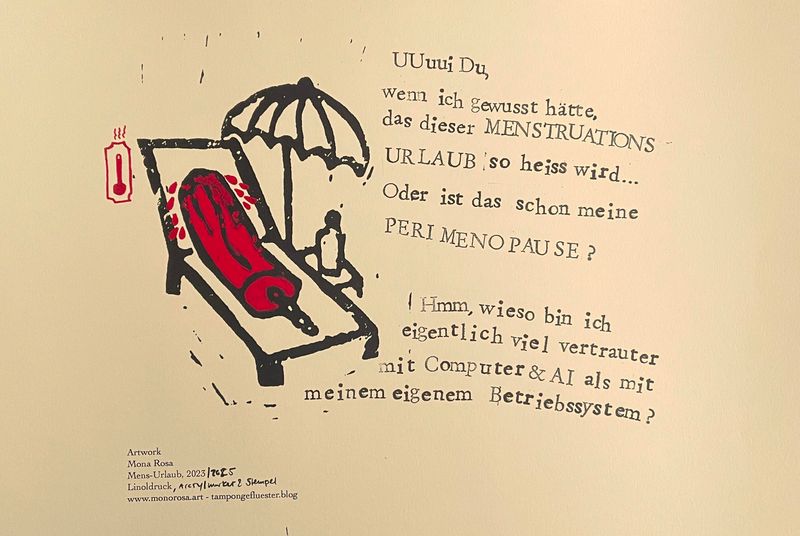 UUuui Du,
wenn ich gewusst hätte,
das dieser MENSTRUATIONS
URLAUB so heiss wird...
Oder ist das schon meine
PERIMENOPAUSE?
Hmm, wieso bin ich
eigentlich viel vertrauter
mit Computer & AI als mit
meinem eigenem Betriebssystem?
Artwork
Mona Rosa
Mens-Urlaub, 2023/2025
Linoldruck, Acrylmarker & Stempel
www.monorosa.art - tampongefluester.blog